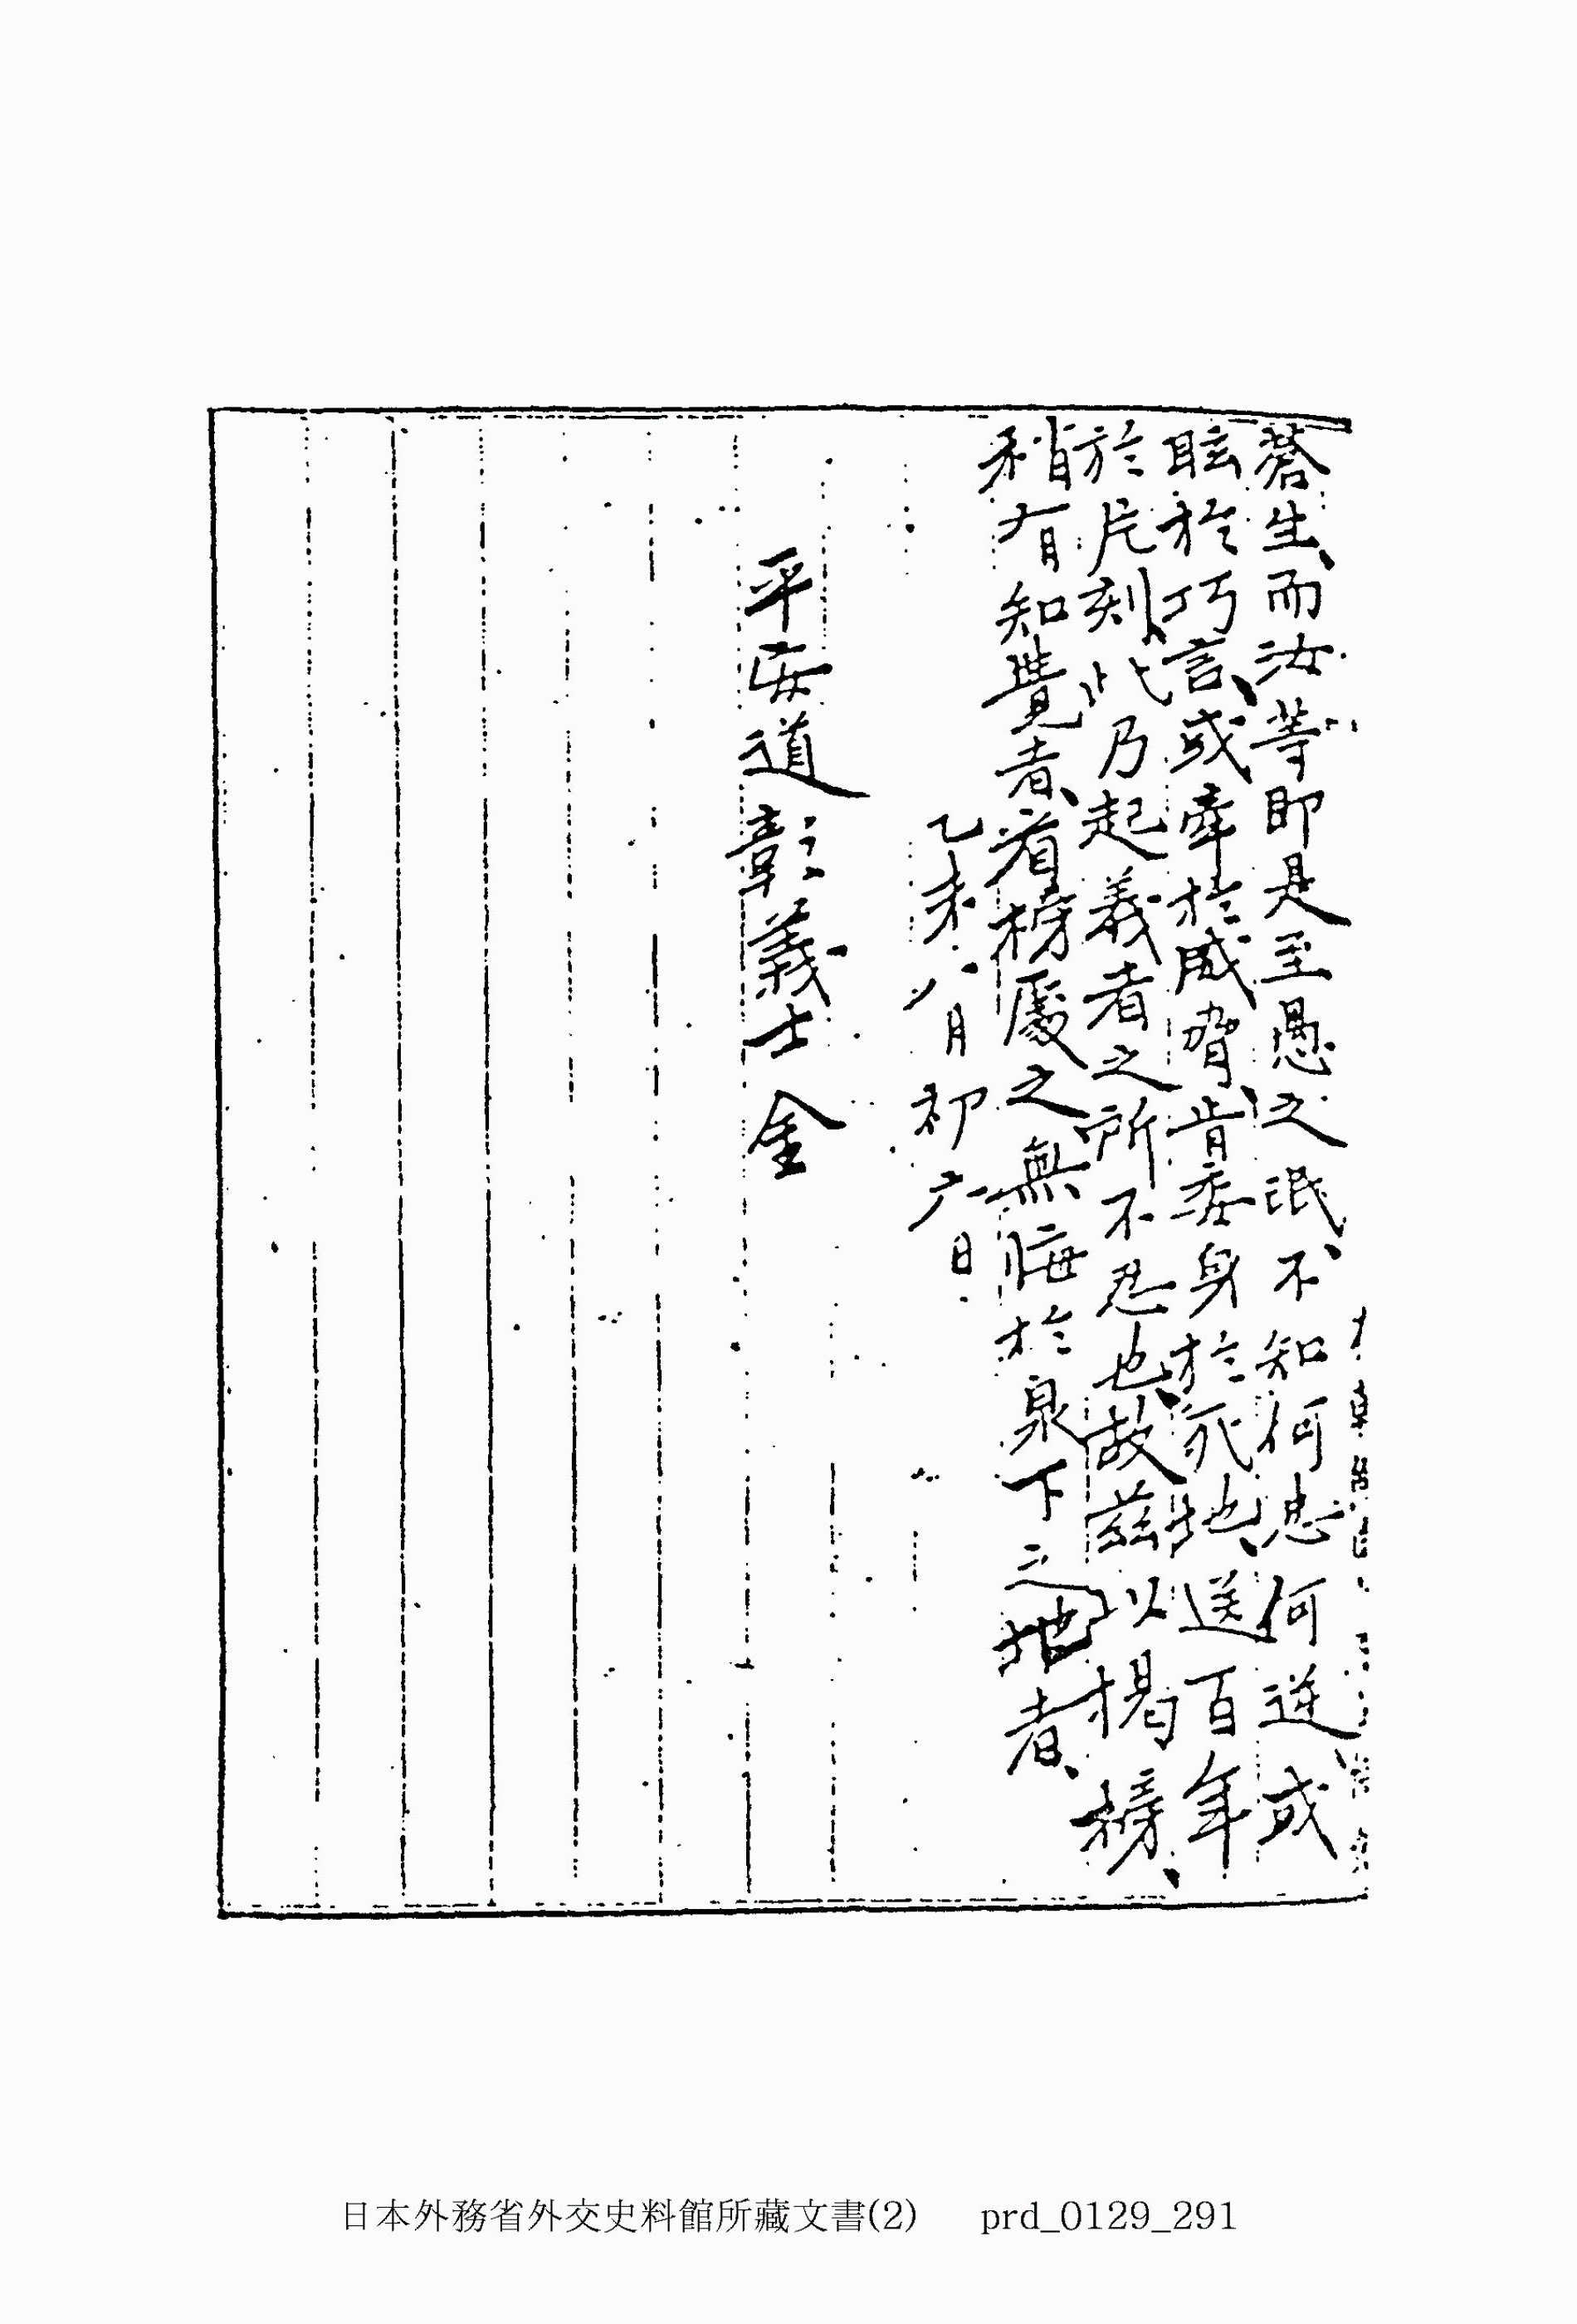 蒼生、而汝等即是至愚之氓、不知何忠何逆、或
眩於巧言、或牽於威脅、肯委身於死地、送百年
於片刻、此乃起義者之所不忍也、故茲以揭榜、
稍有知覺者、看榜處之、無悔於泉下之地者、
乙未八月初六日
平安道彰義士金
日本外務省外交史料館所藏文書(2) prd_0129_291